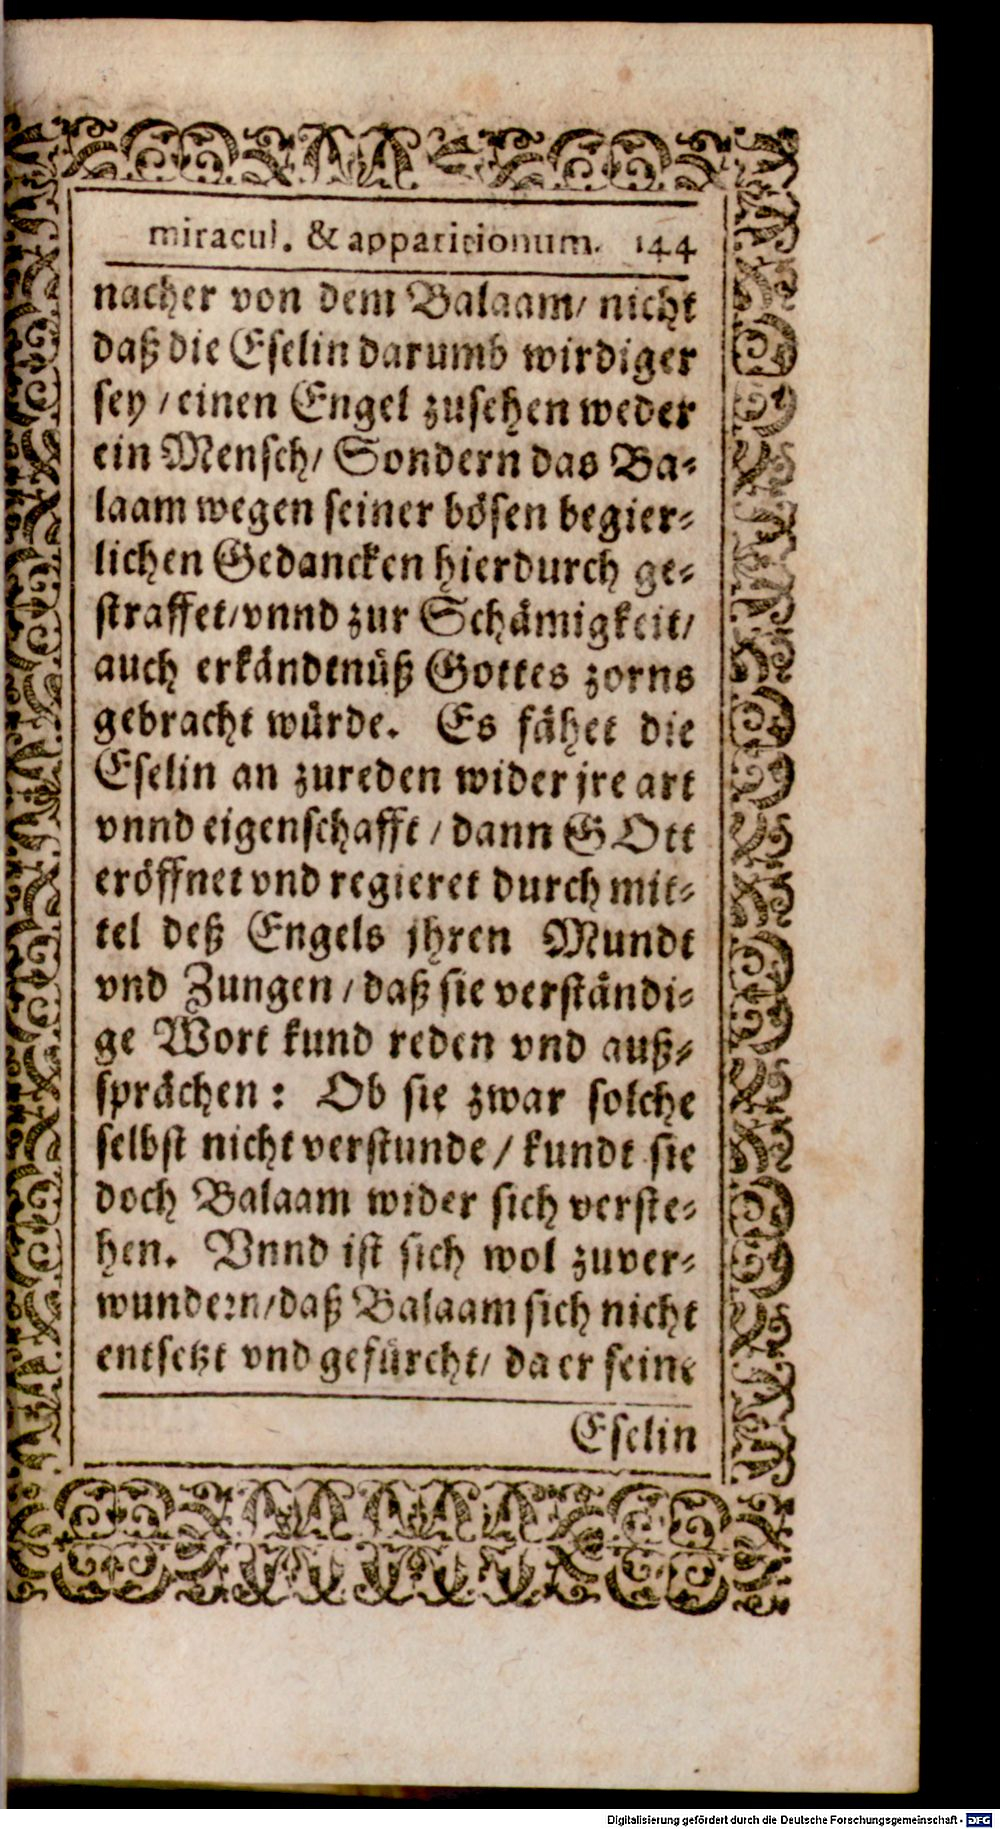 miracul. & apparitionum. 144
nacher von dem Balaam/ nicht
daß die Eselin darumb wirdiger
sey / einen Engel zusehen weder
ein Mensch/ Sondern das Ba-
laam wegen seiner bösen begier-
lichen Gedancken hierdurch ge-
straffet/ vnnd zur Schämigkeit/
auch erkändtnüß Gottes zorns
gebracht würde. Es fähet die
Eselin an zureden wider jre art
vnnd eigenschafft / dann GOtt
eröffnet vnd regieret durch mit-
tel deß Engels jhren Mundt
vnd Zungen / daß sie verständi-
ge Wort kund reden vnd auß-
sprächen : Ob sie zwar solche
selbst nicht verstunde / kundt sie
doch Balaam wider sich verste-
hen. Vnnd ist sich wol zuver-
wundern/ daß Balaam sich nicht
entsetzt vnd gefürcht/ da er seine
Eselin
Digitalisierung gefördert durch die Deutsche Forschungsgemeinschaft - DFG